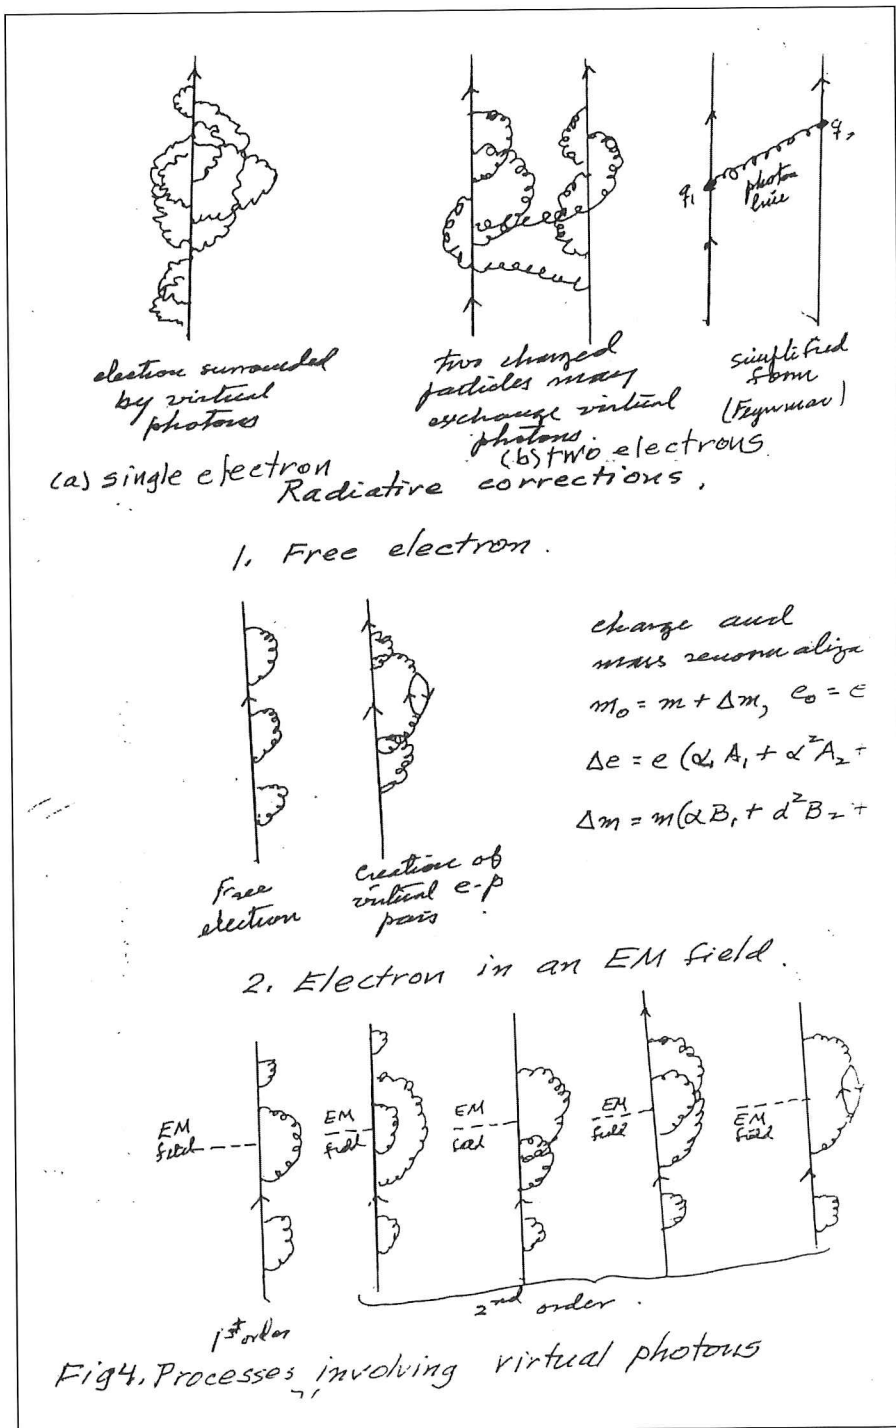 q₁
q₂
photon
line
electron surrounded
by virtual
photons
two charged
particles may
exchange virtual
photons.
simplified
form
(Feynman)
(a) single electron
(b) two electrons
Radiative corrections.
1. Free electron.
charge and
mass renormaliza
m₀ = m + Δm, e₀ = e
Δe = e (α, A₁ + α²A₂ +
Δm = m(αB₁ + α²B₂ +
Free
electron
Creation of
virtual e-p
pairs
2. Electron in an EM field.
EM
field
EM
field
EM
field
EM
field
EM
field
1st order
2nd order.
Fig4. Processes involving virtual photons